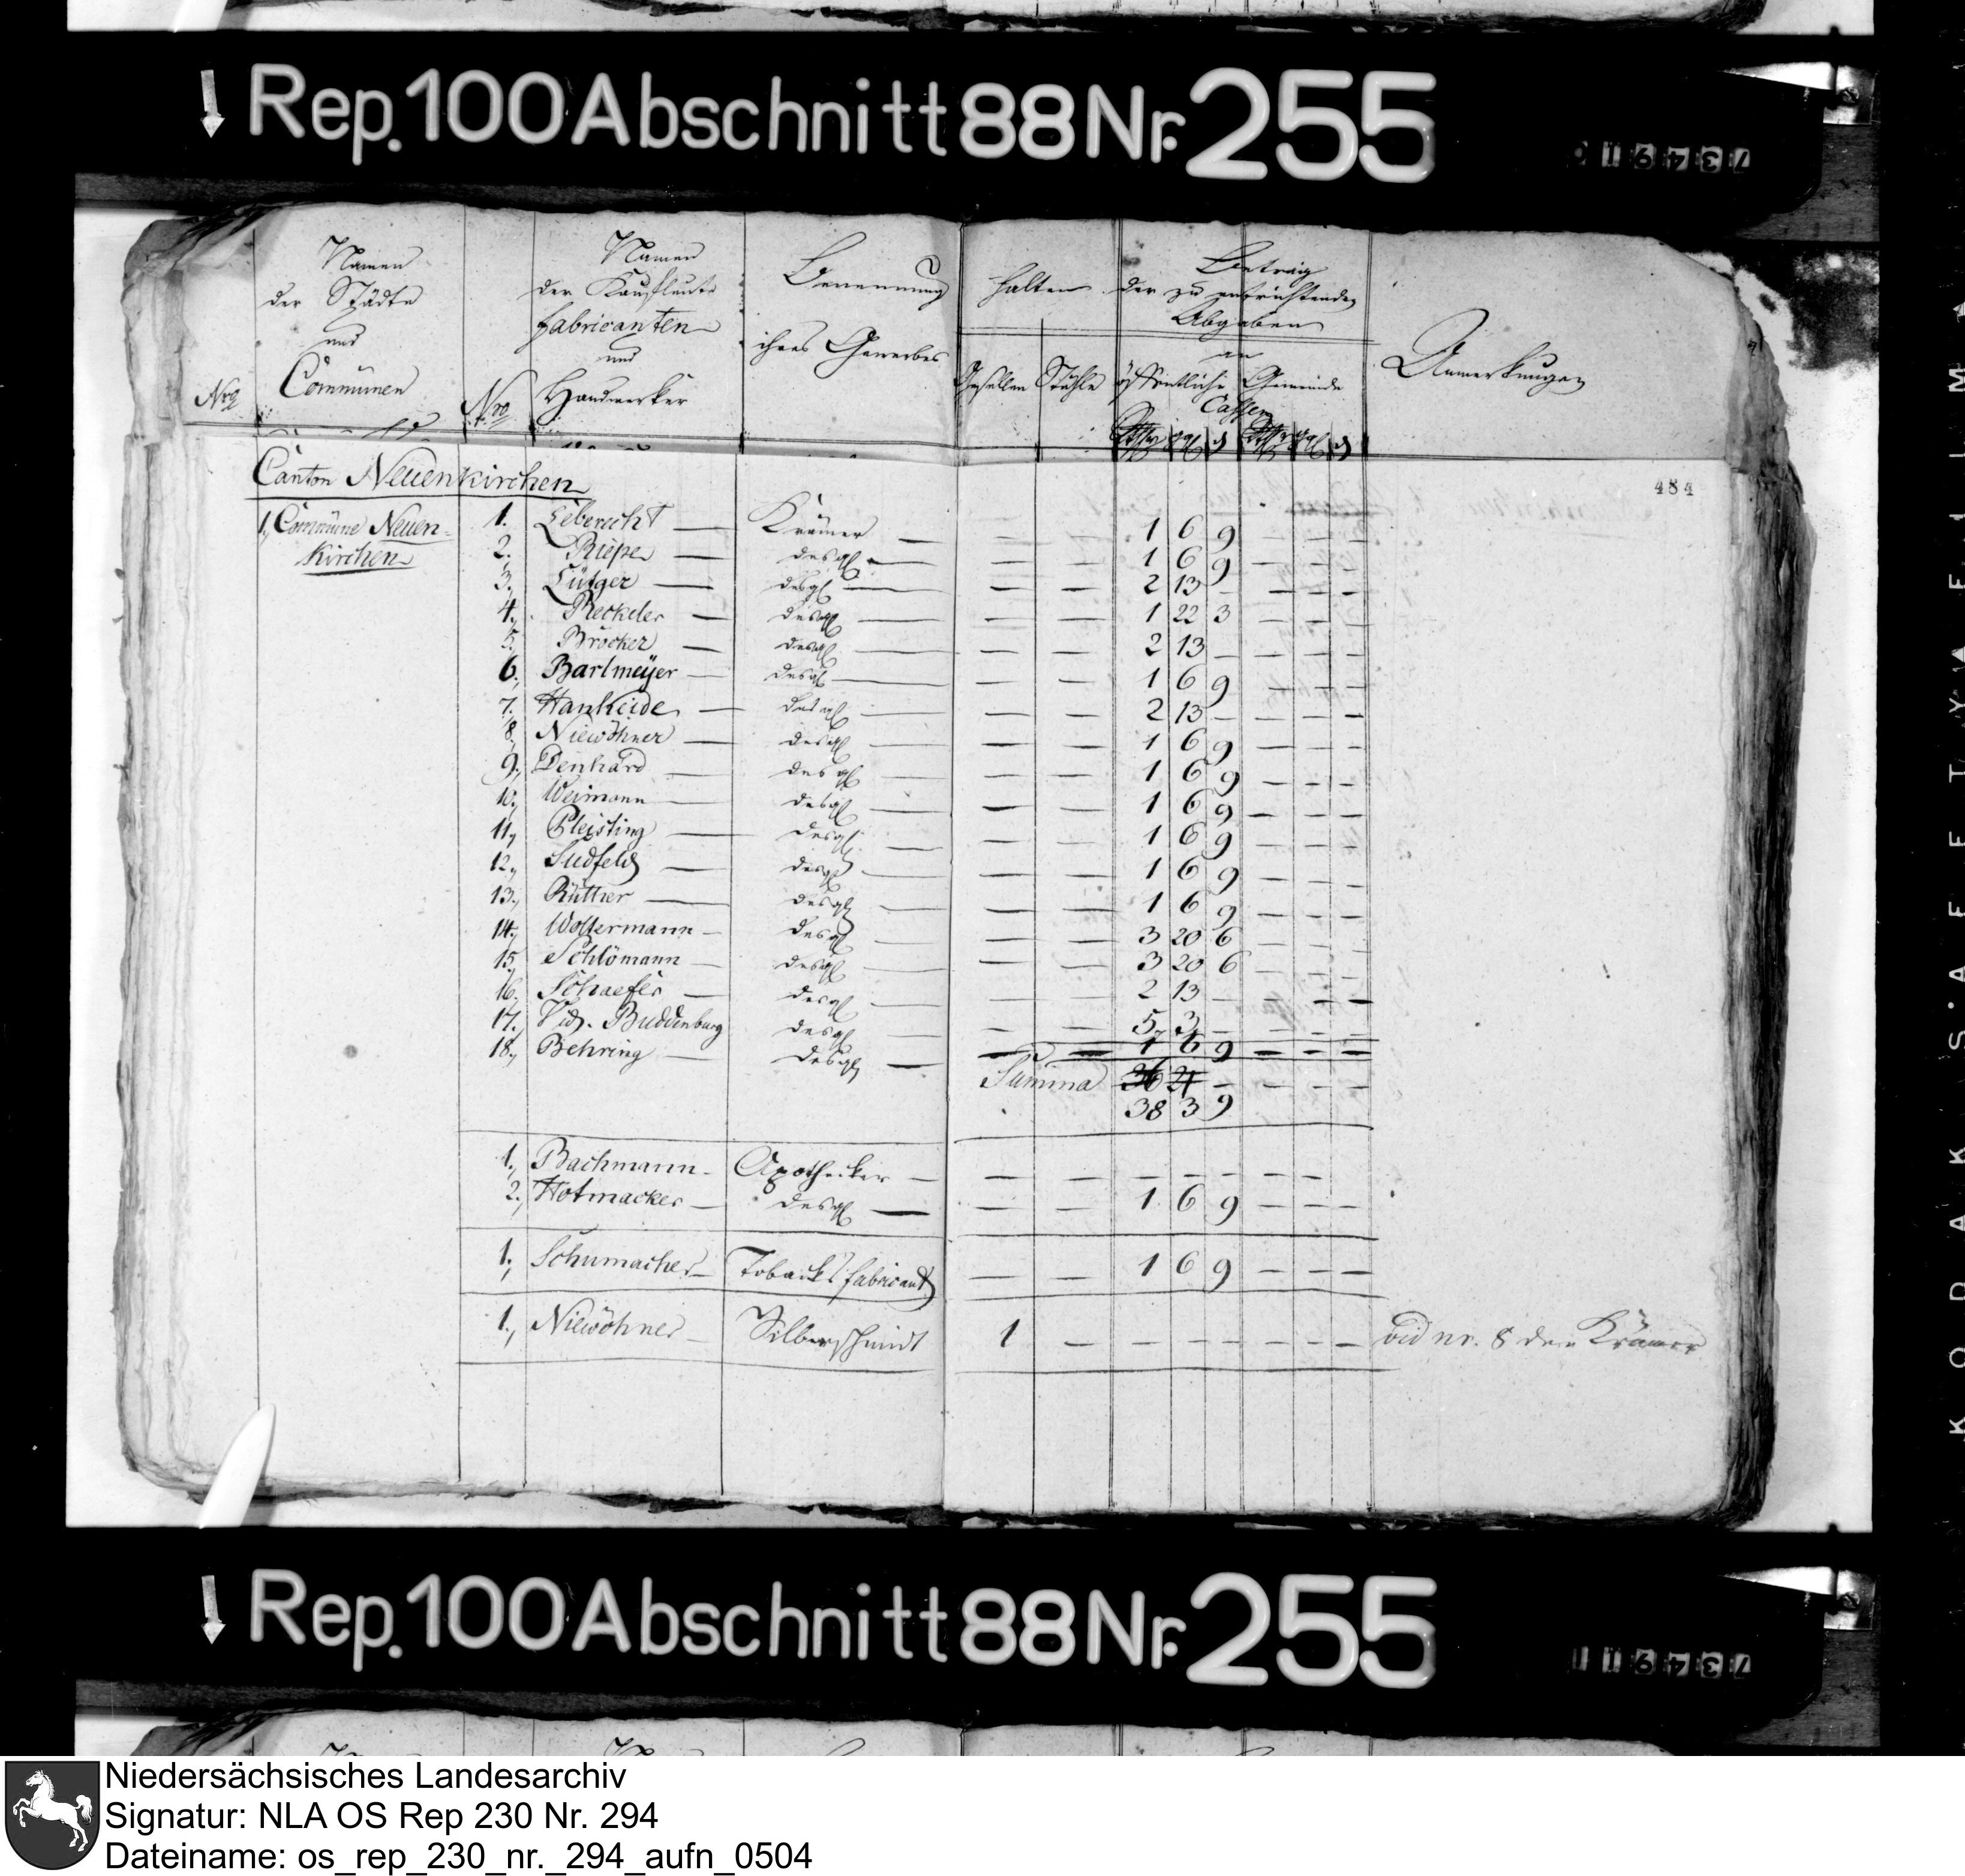 Rep. 100 Abschnitt 88 Nr. 255
Namen
der Städte
und
Communen
Nro
Nro
Namen
der Kaufleute
Fabricanten
und
Handwerker
Benennung
ihres Gewerbes
halten
Gesellen Stühle
Betrag
der zu entrichtenden
Abgaben
an
öffentliche Gemeinde
Cassen
Anmerkungen
484
Canton Neuenkirchen
1, Commüne Neuen-
kirchen
1. Leberecht — Krämer — — — 1 6 9 — — —
2. Riepe — desgl — — — 1 6 9 — — —
3. Lütger — desgl — — — 2 13 — — — —
4. Reckeler — desgl — — — 1 22 3 — — —
5. Bröcker — desgl — — — 2 13 — — — —
6. Barlmeyer — desgl — — — 1 6 9 — — —
7. Hankeide — desgl — — — 2 13 — — — —
8. Niewöhner — desgl — — — 1 6 9 — — —
9. Denhard — desgl — — — 1 6 9 — — —
10. Weimann — desgl — — — 1 6 9 — — —
11. Pleisting — desgl — — — 1 6 9 — — —
12. Sudfeld — desgl — — — 1 6 9 — — —
13. Rüther — desgl — — — 1 6 9 — — —
14. Woltermann — desgl — — — 3 20 6 — — —
15. Schlömann — desgl — — — 3 20 6 — — —
16. Schaefer — desgl — — — 2 13 — — — —
17. Vid. Buddenburg desgl — — — 5 3 — — — —
18. Behring — desgl — — — 1 6 9 — — —
Summa 36 21 — — — —
38 3 9
1. Bachmann — Apotheker — — — — — — — — —
2. Hotmacker — desgl — — — 1 6 9 — — —
1. Schumacher — Tobacks fabricant — — 1 6 9 — — —
1. Niewöhner — Silberschmidt 1 — — — — — — — vid nr. 8 der Krämer
Rep. 100 Abschnitt 88 Nr. 255
KODAK SAFETY FILM
Niedersächsisches Landesarchiv
Signatur: NLA OS Rep 230 Nr. 294
Dateiname: os_rep_230_nr._294_aufn_0504